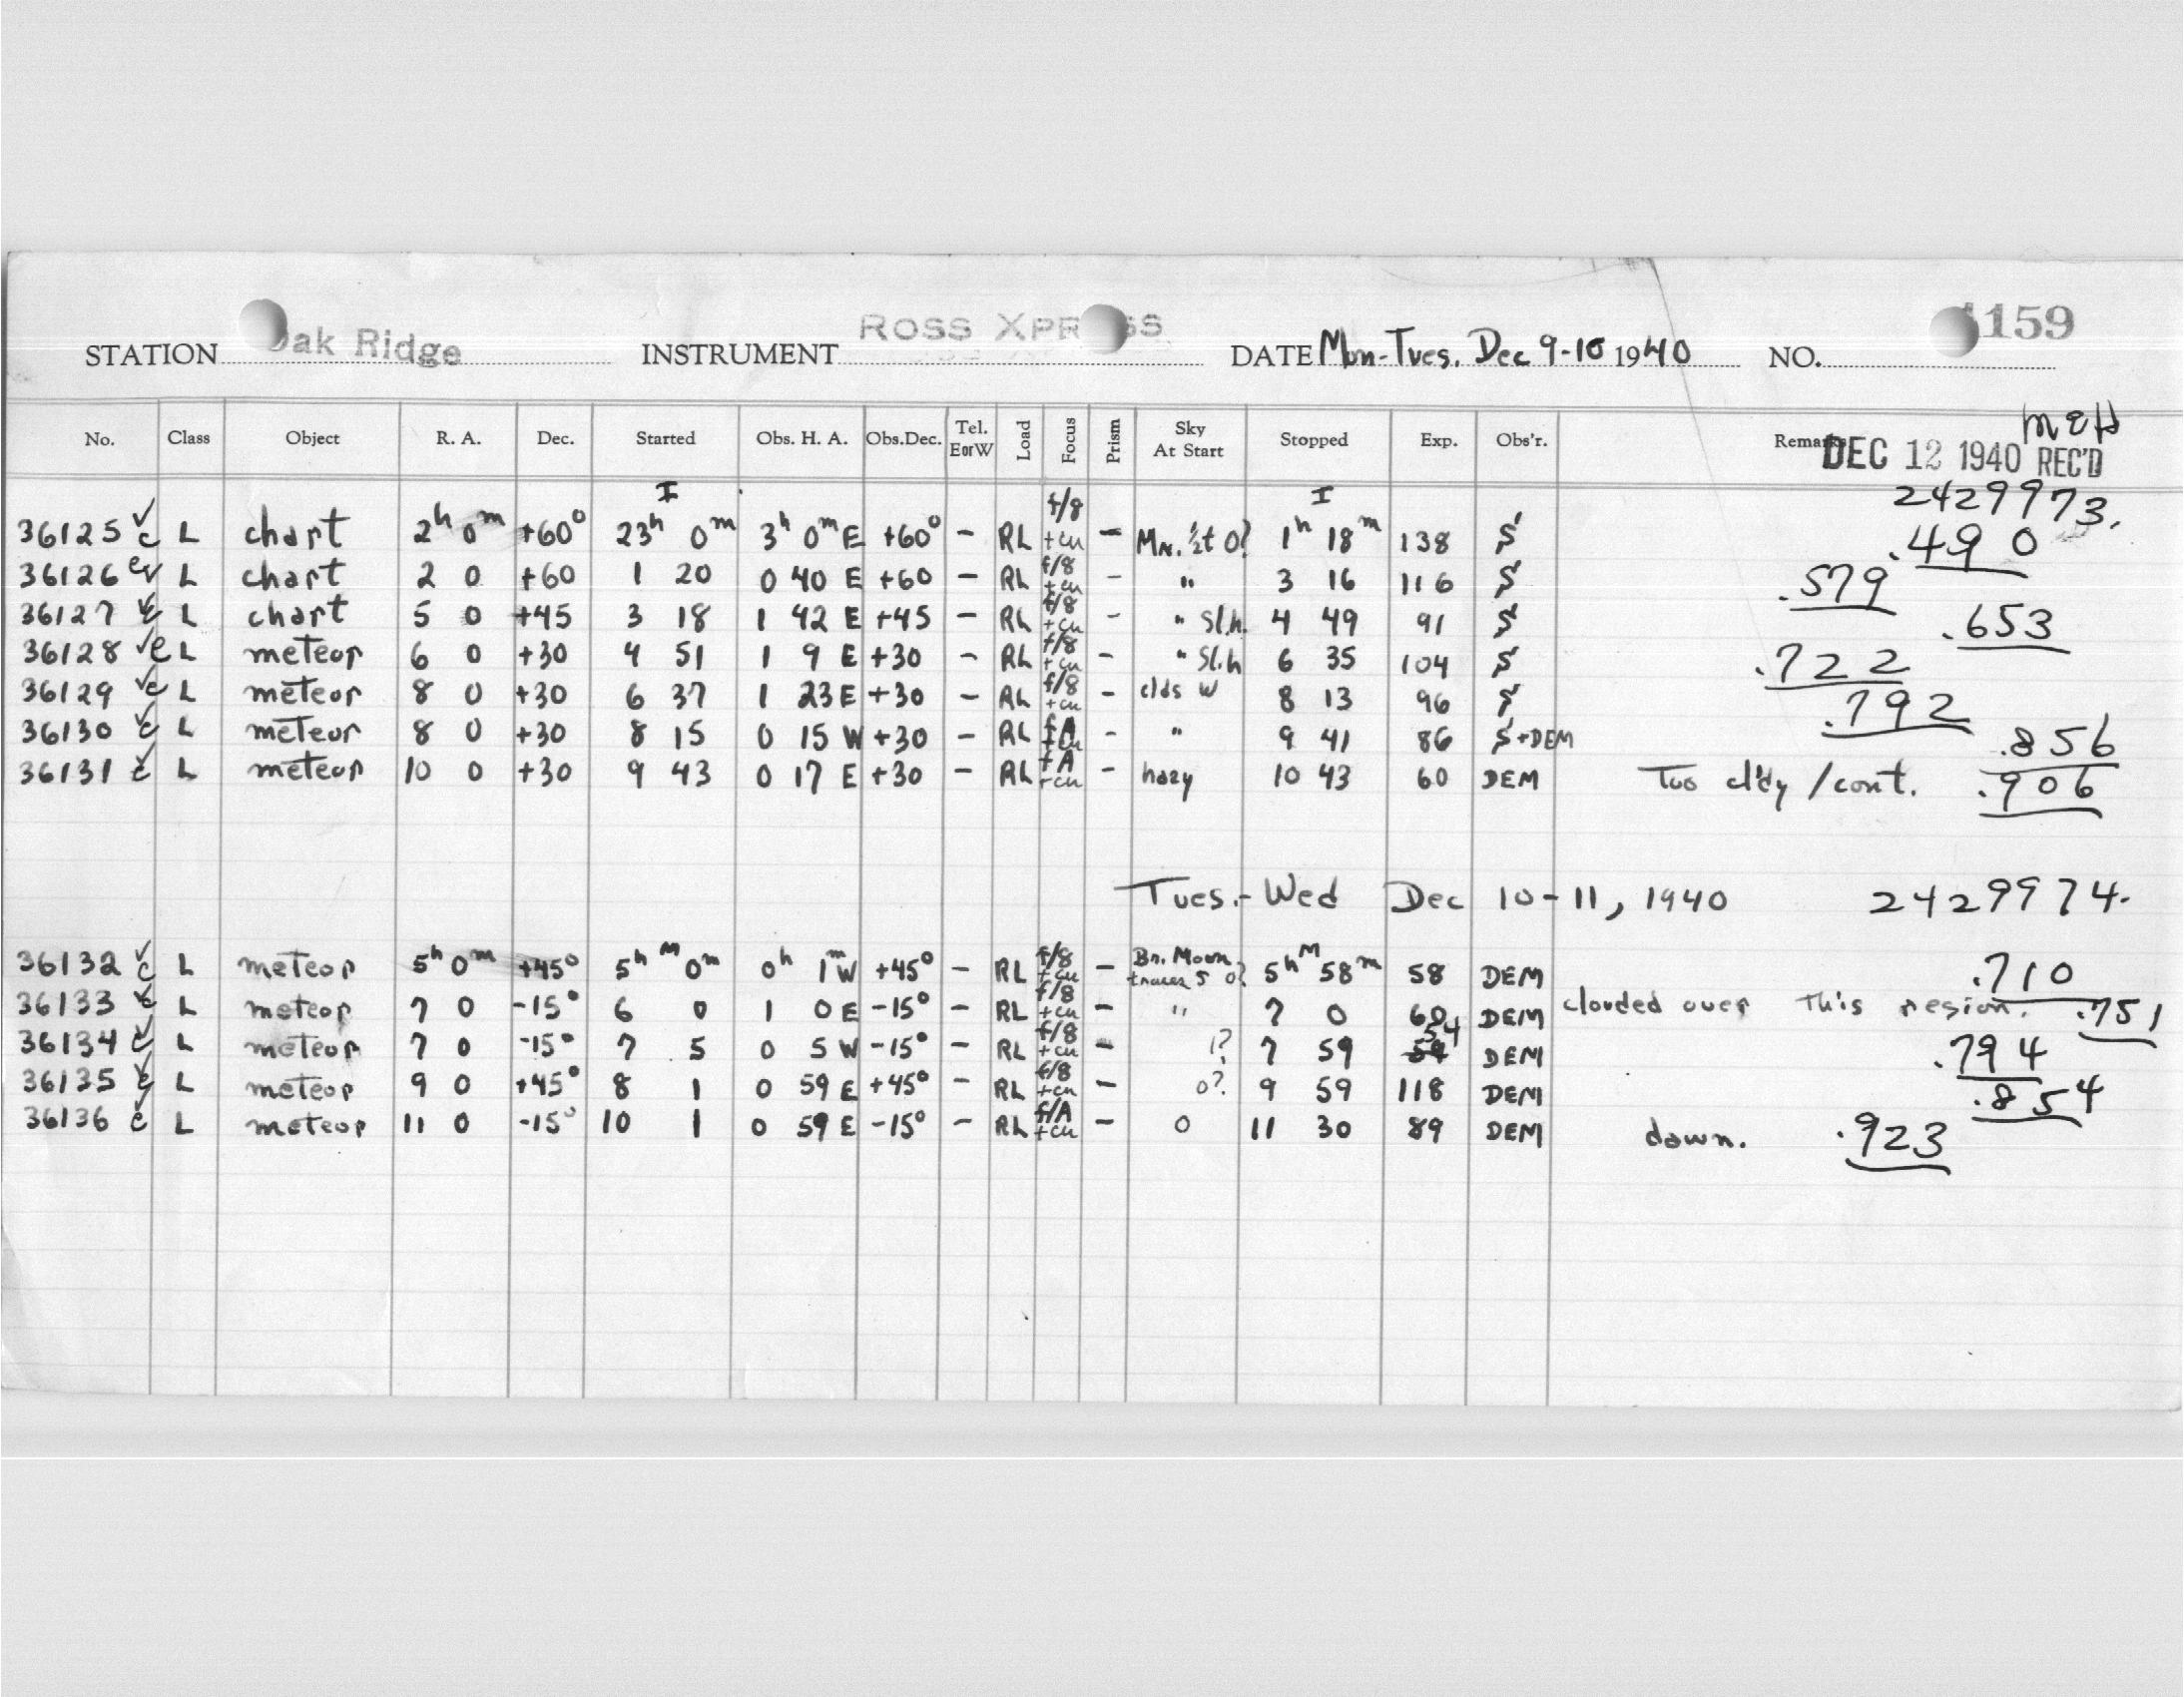 STATION Oak Ridge INSTRUMENT ROSS XPRESS DATE Mon-Tues. Dec 9-10 1940 NO. 159
No. Class Object R. A. Dec. Started Obs. H. A. Obs.Dec. Tel. EorW Load Focus Prism Sky At Start Stopped Exp. Obs'r. Remarks
MEH
DEC 12 1940 REC'D
I I 2429973.
36125 ✓c L chart 2h 0m +60° 23h 0m 3h 0m E +60° - RL f/8 +cu - Mn. ½t 0? 1h 18m 138 S .490
36126 c✓ L chart 2 0 +60 1 20 0 40 E +60 - RL f/8 +cu - " 3 16 116 S .579
36127 ✓c L chart 5 0 +45 3 18 1 42 E +45 - RL f/8 +cu - " Sl.h. 4 49 91 S .653
36128 ✓c L meteor 6 0 +30 4 51 1 9 E +30 - RL f/8 +cu - " Sl.h 6 35 104 S .722
36129 ✓c L meteor 8 0 +30 6 37 1 23 E +30 - RL f/8 +cu - clds W 8 13 96 S .792
36130 ✓c L meteor 8 0 +30 8 15 0 15 W +30 - RL fA +cu - " 9 41 86 S+DEM .856
36131 ✓c L meteor 10 0 +30 9 43 0 17 E +30 - RL fA +cu - hazy 10 43 60 DEM Too cl'dy /cont. .906
Tues.-Wed Dec 10-11, 1940 2429974.
36132 ✓c L meteor 5h 0m +45° 5h M 0m 0h 1m W +45° - RL f/8 +cu - Br. Moon traces S 0? 5h M 58m 58 DEM .710
36133 ✓c L meteor 7 0 -15° 6 0 1 0 E -15° - RL f/8 +cu - " 7 0 60 DEM clouded over this region. .751
36134 ✓c L meteor 7 0 -15° 7 5 0 5 W -15° - RL f/8 +cu - 1? 7 59 54 DEM .794
36135 ✓c L meteor 9 0 +45° 8 1 0 59 E +45° - RL f/8 +cu - 0? 9 59 118 DEM .854
36136 ✓c L meteor 11 0 -15° 10 1 0 59 E -15° - RL f/A +cu - 0 11 30 89 DEM dawn. .923